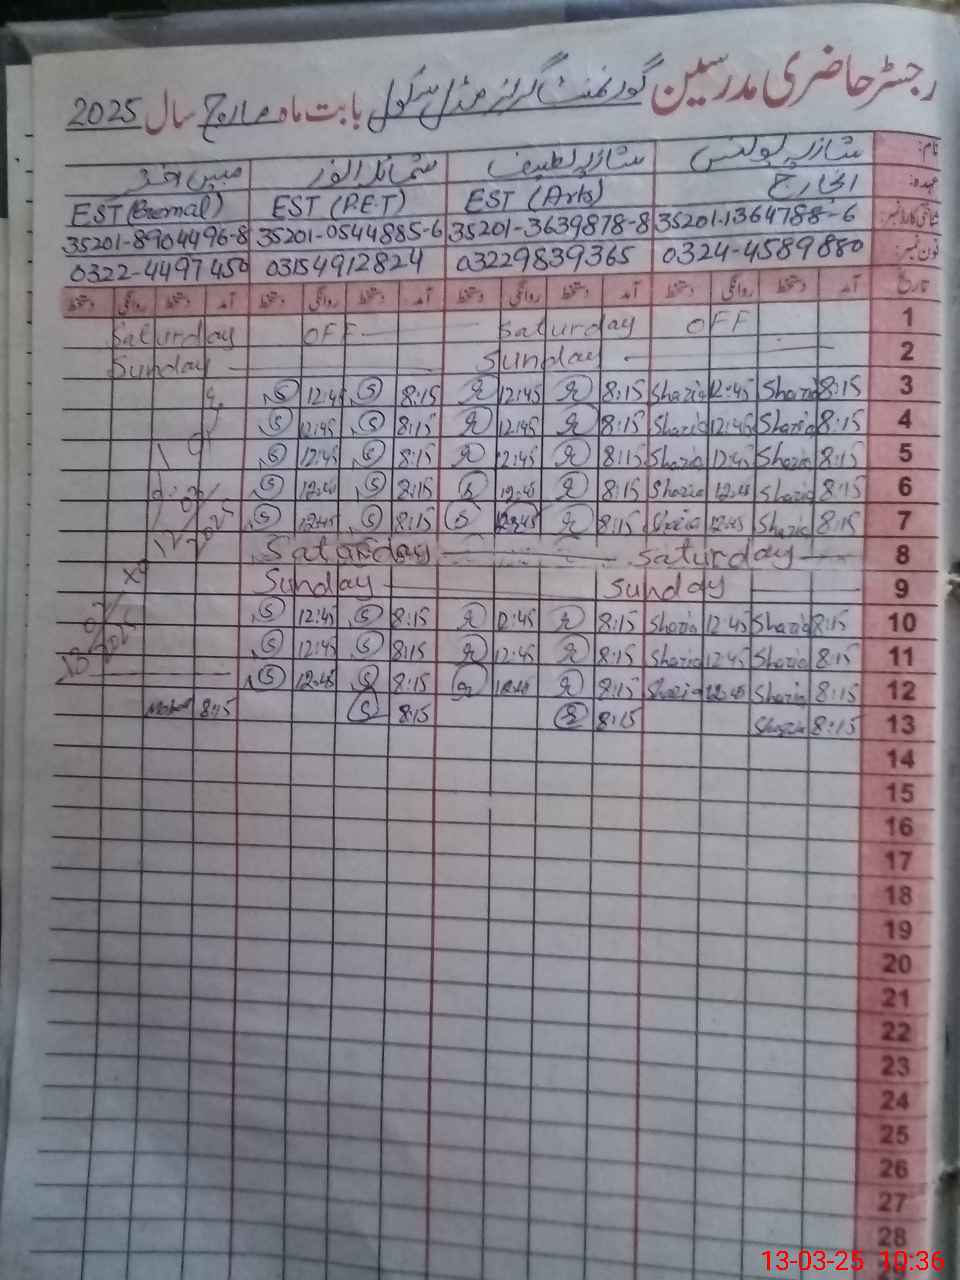 رجسٹر حاضری مدرسین گورنمنٹ گرلز مڈل سکول بابت ماہ مارچ سال 2025
نام: شازیہ یونس شازیہ لطیف شمائلہ انور
عہدہ: انچارج EST (Arts) EST (P.E.T)
35201-1364788-6 35201-3639878-8 35201-0544885-6 35201-8904496-8
فون نمبر: 0324-4589880 03229839365 03154912824 0322-4497450
تاریخ آمد دستخط روانگی دستخط آمد دستخط روانگی دستخط آمد دستخط روانگی دستخط آمد دستخط روانگی دستخط
1 Saturday OFF Saturday OFF
2 Sunday Sunday
3 8:15 Shazia 12:45 Shazia 8:15 12:45 8:15 S 12:45 S
4 8:15 Shazia 12:45 Shazia 8:15 12:45 8:15 S 12:45 S
5 8:15 Shazia 12:45 Shazia 8:15 12:45 8:15 S 12:45 S
6 8:15 Shazia 12:45 Shazia 8:15 12:45 8:15 S 12:45 S
7 8:15 Shazia 12:45 Shazia 8:15 12:45 8:15 S 12:45 S
8 Saturday Saturday
9 Sunday Sunday
10 8:15 Shazia 12:45 Shazia 8:15 12:45 8:15 S 12:45 S
11 8:15 Shazia 12:45 Shazia 8:15 12:45 8:15 S 12:45 S
12 8:15 Shazia 12:45 Shazia 8:15 12:45 8:15 S 12:45 S
13 8:15 Shazia 8:15 8:15 S 8:15
14
15
16
17
18
19
20
21
22
23
24
25
26
27
28
13-03-25 10:36